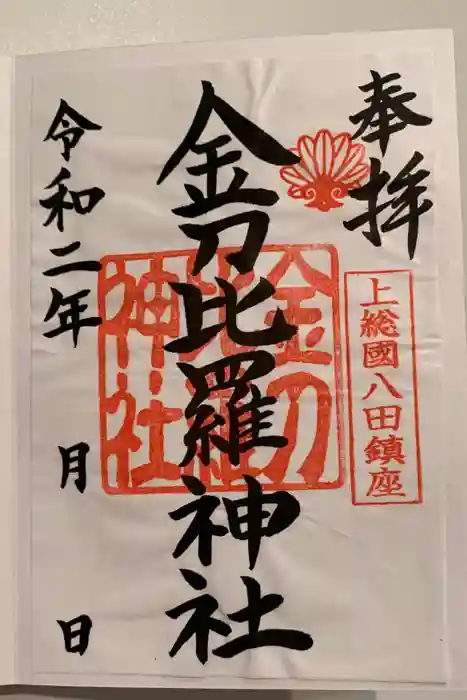 奉拝
上総國八田鎮座
金刀比羅神社
金刀比羅神社
令和二年 月 日